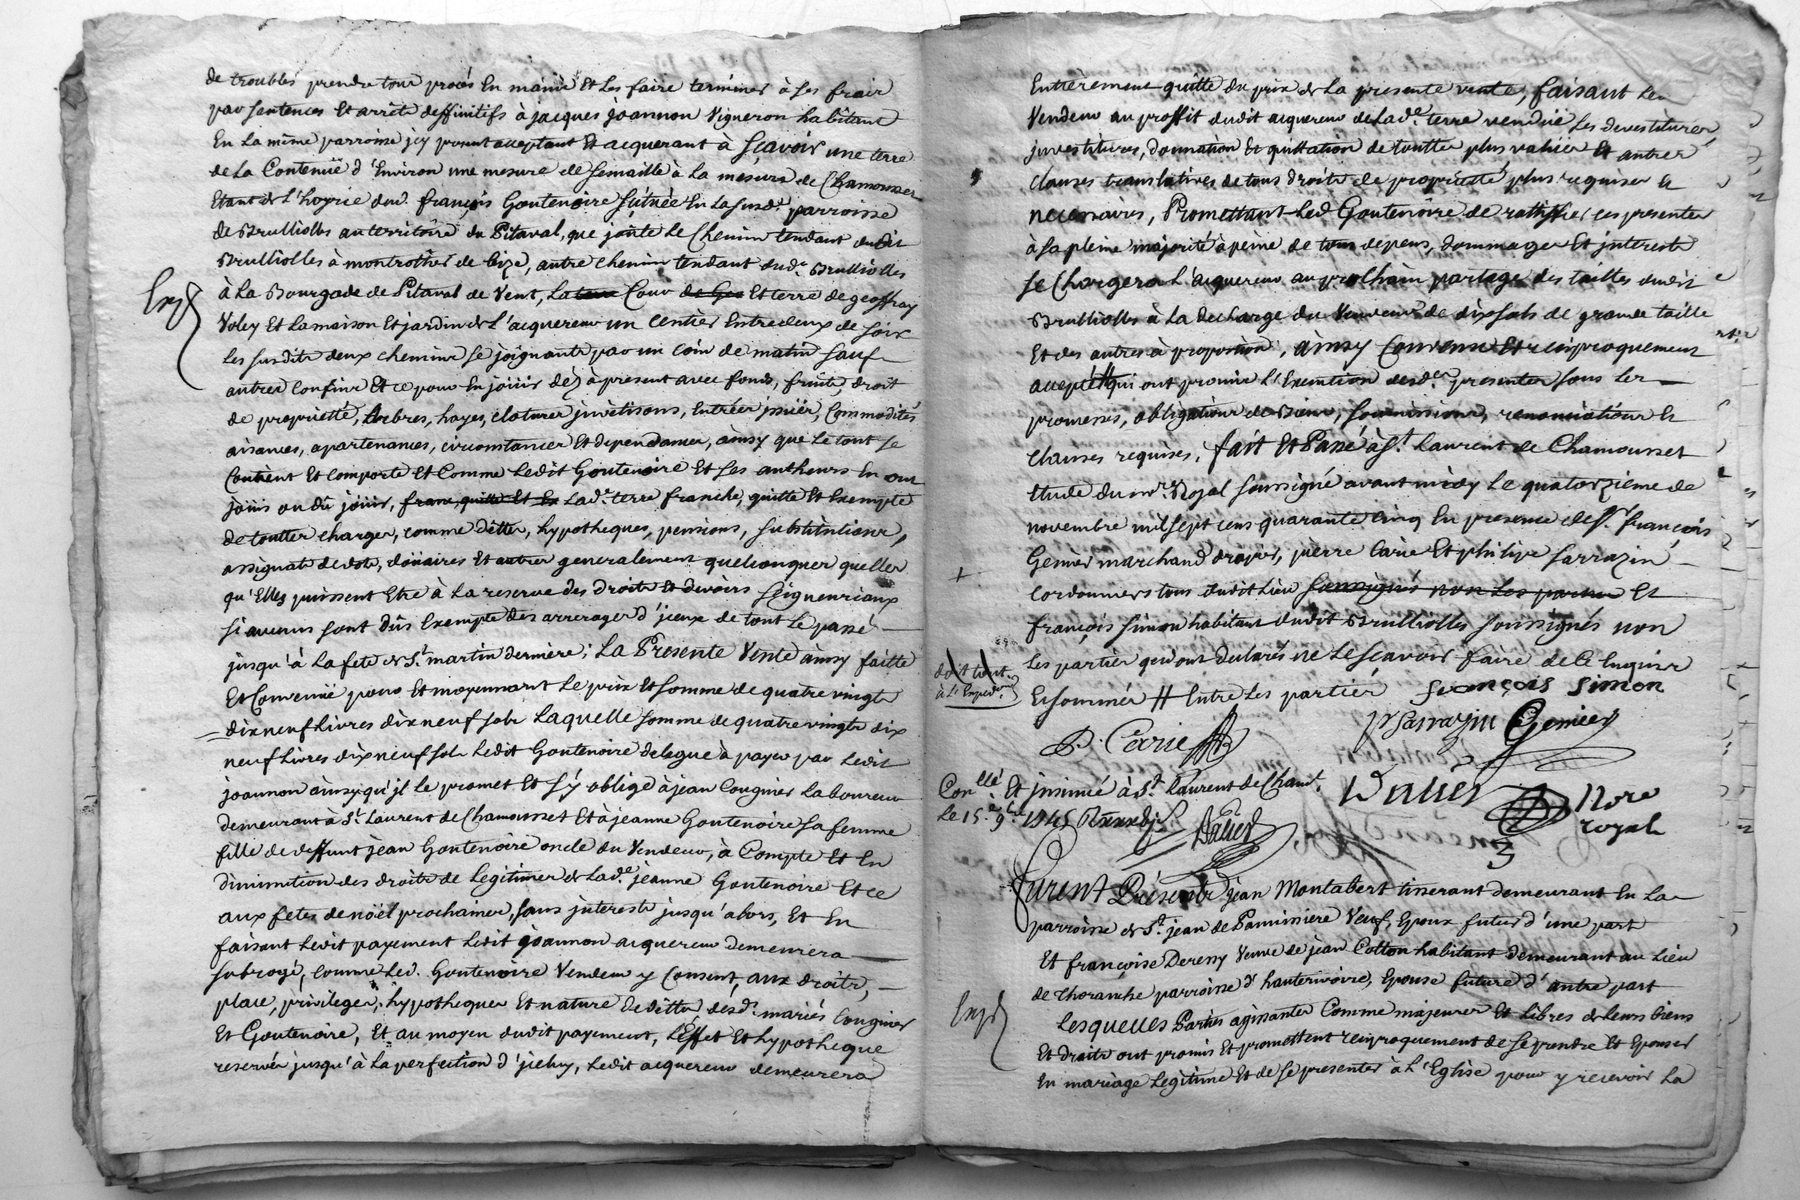 de troubles prendre tour procés En mainie Et Les faire terminer à Ses frair
par Sentences Et arrets deffinitifs à jacques joannon Vigneron habitant
En La même parroisse jcy present acceptant Et acquerant à Sçavoir une terre
de La Contenüe d'Environ une mesure de Semaille à La mesure de Chamousset
Etant de L'hoyrie dud. françois Goutenoire Sitüée En La Susd.e parroisse
de Brulliolles au territoire du Pitaval, que joûte Le Chemin tendant dudit
Brulliolles à montrotier de bize, autre chemin tendant dud.t Brulliolles
à La Bourgade de Pitaval de Vent, La terre Cour de Geo Et terre de geoffray
Voley Et La maison Et jardin de L'acquereur un Centier Entredeux de Soir
Les Susdits deux chemins Se joignants par un Coin de matin Sauf
autres Confins Et ce pour En joüir déz à present avec fonds, fruits, droit
de proprieté, Arbres, hayes, clotures jnvêtisons, Entrées jssües, Commodités
aisances, apartenances, circonstances Et dependances, ainsy que Le tout Se
Contient Et Comporte Et Comme Ledit Goutenoire Et Ses autheurs En ont
joüis ou dû joüir, franc, quitte Et Ex Lad.e terre franche, quitte Et Exempte
de toutter charges, comme detter, hypotheques, pensions, Substitutions,
assignats de dots, doüaires Et autres generalement quelconques quelles
qu'Elles puissent Etre à La reserve des droits Et devoirs Seigneuriaux
Si aucuns Sont dûs Exempte des arrerages d'jceux de tout Le passé
jusqu'à La fete de S.t martin derniere; La Presente Vente ainsy faitte
Et Convenüe pour Et moyennant Le prix Et Somme de quatre vingts
dix neuf Livres dix neuf Sols Laquelle Somme de quatre vingts dix
neuf Livres dix neuf Sols Ledit Goutenoire delegue à payer par Ledit
joannon ainsy qu'jl Le promet Et S'y oblige à jean Couginer Laboureur
demeurant à S.t Laurent de Chamousset Et à jeanne Goutenoire Sa femme
fille de deffunt jean Goutenoire oncle du Vendeur, à Compte Et En
diminution des droits de Legitimes de Lad.e jeanne Goutenoire Et ce
aux fetes de nöel prochaines, Sans jnterests jusqu'alors, Et En
faisant Ledit payement Ledit joannon acquereur demeurera
Subrogé, comme Led. Goutenoire Vendeur y Consent, aux droits,
place, privileges, hypotheques Et nature de dette, desd.s mariés Couginer
Et Goutenoire, Et au moyen dudit payement, L'Effet Et hypotheque
reservée jusqu'à La perfection d'jceluy, Ledit acquereur demeurera
Exp
Entierement quitte du prix de La presente vente, faisant Led
Vendeur au proffit dudit acquereur de Lad.e terre vendüe Les devestitures
jnvestitures, donnation Et quittation de toutte plus valüe Et autres
clauses translatives de tous droits de proprieté plus requises Et
necessaires, Promettant Led Goutenoire de ratiffier ces presentes
à Sa pleine majorité à peine de tous depens, dommages Et jnterests
Se Chargera L'acquereur au prochain partage des tailles dudit
Brulliolles à La decharge du Vendeur de dix Sols de grande taille
Et des autres à proportion, ainsy Convenu Et reciproquement
accepté # qui ont promis L'Execution desd.es presentes Sous Les
promesses, obligations de Biens, Soumissions, renonciations Et
clauses requises, fait Et Passé à S.t Laurent de Chamousset
Etude du no.re Royal Soussigné avant midy Le quatorzieme de
novembre mil Sept cens quarante cinq En presence de S.r françois
Gemier marchand drapier, pierre Carie Et philipe Sarrazin
+
cordonniers tous dudit Lieu Soussignés non Les parties Et
françois Simon habitant dudit Brulliolles Soussignés non
Les parties qui ont declarés ne Le Sçavoir faire de Ce Enquis Et
Ensommés # Entre Les parties françois Simon
P. Carie PSarrazin Gemier
Con.llé Et jnsinué à S.t Laurent de Cham.t
Le 15.e 9.bre 1745
Dalier
Nore
royal
Furent Présents jean Montabert tisserant demeurant En La
parroisse de S.t jean de Pannissiere Veuf, Epoux futur d'une part
Et françoise Deressy Veuve de jean Cotton habitant demeurant au Lieu
de Thoranche parroisse d'hauterivoire, Epouse future d'autre part
Lesquelles Parties agissantes Comme majeures Et Libres de Leurs biens
Et droits ont promis Et promettent reciproquement de Se prendre Et Epouser
En mariage Legitime Et de Se presenter à L'Eglise pour y recevoir La
Exp